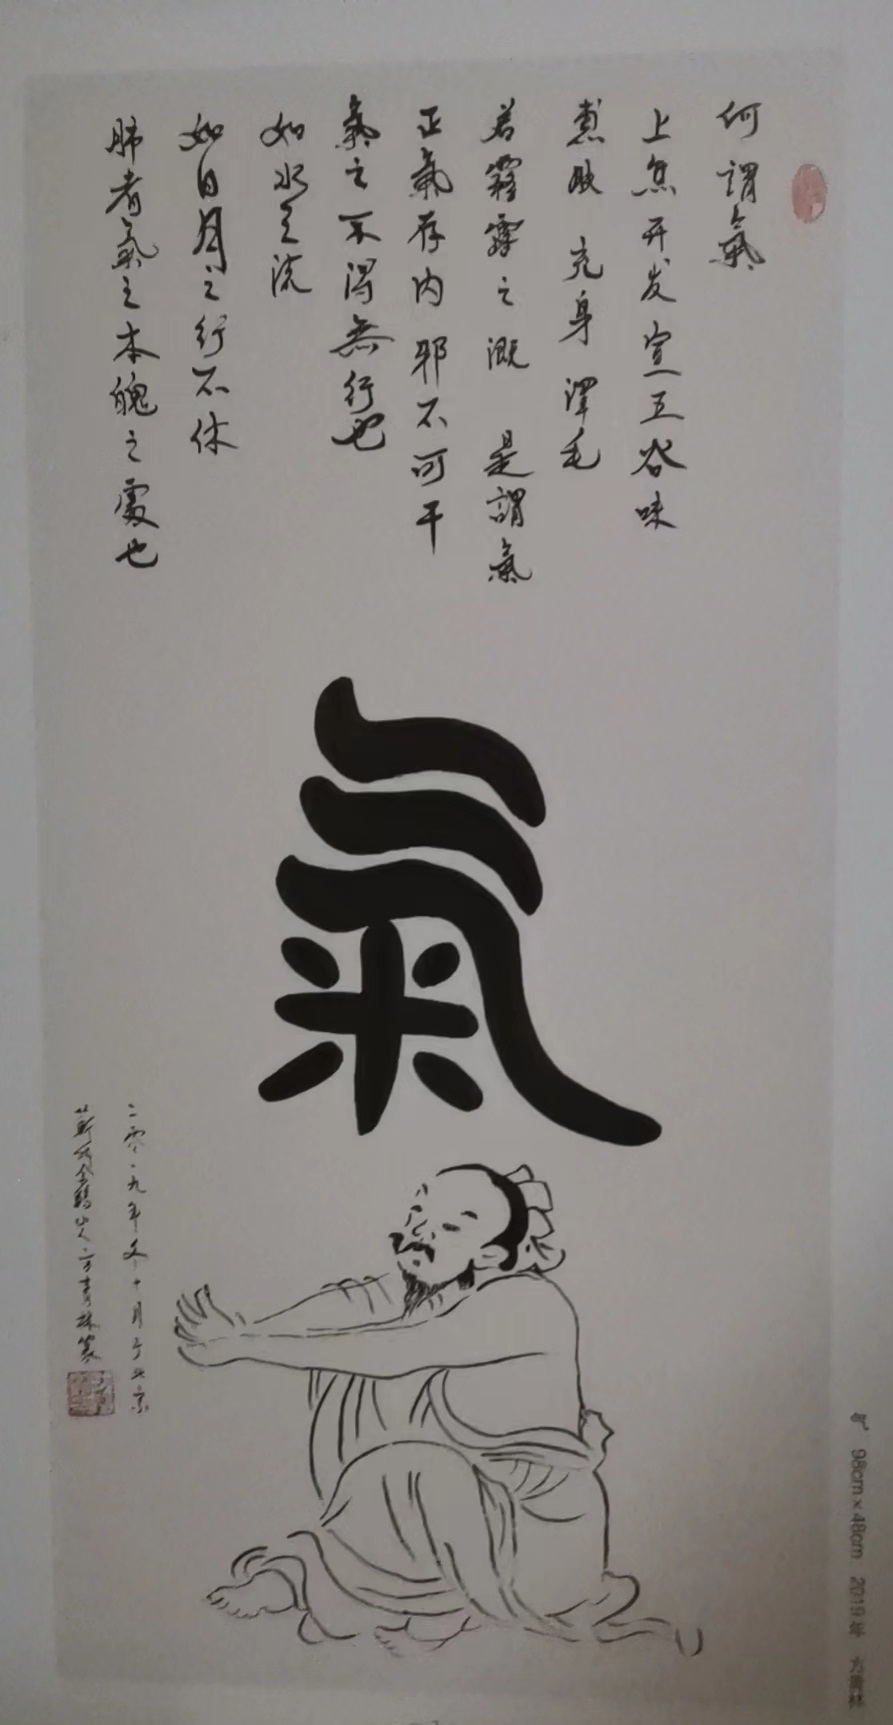 何謂氣
上焦开发宣五谷味
熏肤 充身 澤毛
若霧露之溉 是謂氣
正氣存内 邪不可干
氣之不得無行也
如水之流
如日月之行不休
肺者氣之本魄之處也
氣
二零一九年冬十月于北京
山人方青林篆
气 98cm×48cm 2019年 方青林